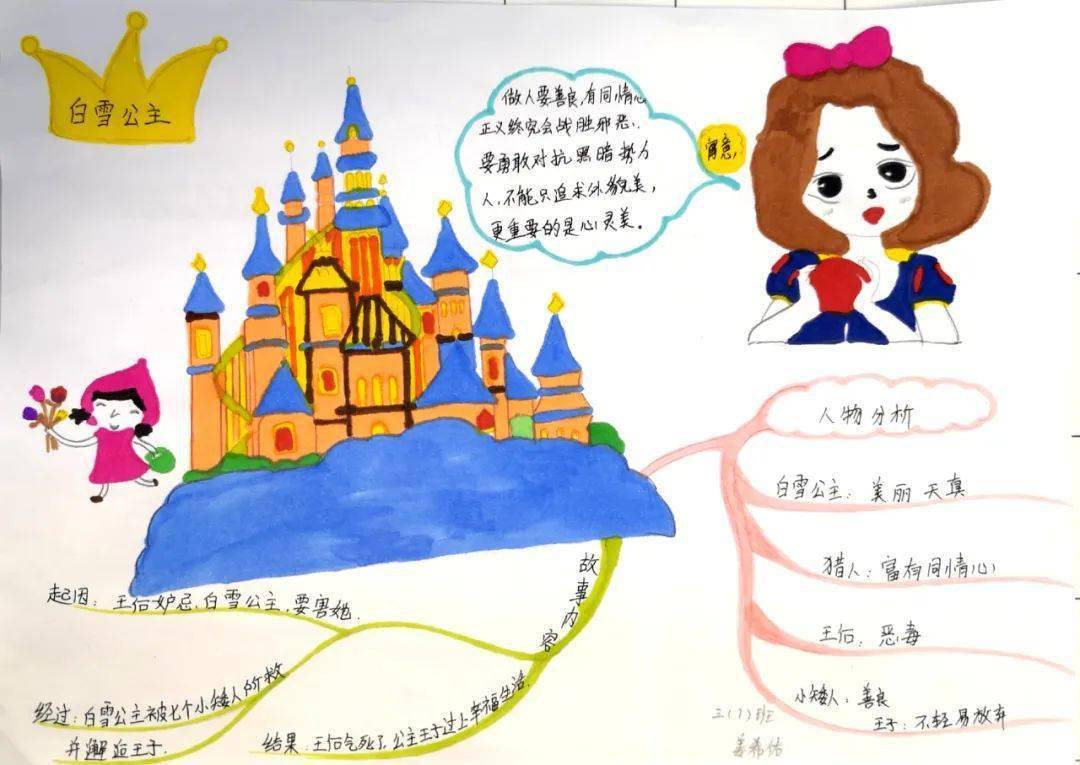 白雪公主
做人要善良,有同情心
正义终究会战胜邪恶.
要勇敢对抗黑暗势力
人,不能只追求外貌美,
更重要的是心灵美。
寓意
人物分析
白雪公主: 美丽 天真
猎人: 富有同情心
王后: 恶毒
小矮人: 善良
王子: 不轻易放弃
故事内容
起因: 王后妒忌.白雪公主.要害她.
经过: 白雪公主被七个小矮人所救
并邂逅王子.
结果: 王后气死了.公主王子过上幸福生活.
三(7)班